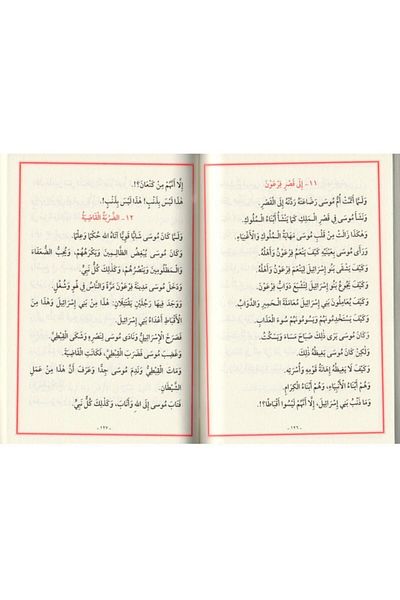 ١١- إِلَى قَصْرِ فِرْعَوْنَ
وَلَمَّا أَتَمَّتْ أُمُّ مُوسَى رَضَاعَتَهُ رَدَّتْهُ إِلَى الْقَصْرِ.
وَنَشَأَ مُوسَى فِي قَصْرِ الْمَلِكِ كَمَا يَنْشَأُ أَبْنَاءُ الْمُلُوكِ.
وَهَكَذَا زَالَتْ مِنْ قَلْبِ مُوسَى مَهَابَةُ الْمُلُوكِ وَالْأَغْنِيَاءِ.
وَرَأَى مُوسَى بِعَيْنَيْهِ كَيْفَ يَنْعَمُ فِرْعَوْنُ وَأَهْلُهُ.
وَكَيْفَ يَشْقَى بَنُو إِسْرَائِيلَ لِيَنْعَمَ فِرْعَوْنُ وَأَهْلُهُ.
وَكَيْفَ يَجُوعُ بَنُو إِسْرَائِيلَ لِتَشْبَعَ دَوَابُّ فِرْعَوْنَ.
وَكَيْفَ يُعَامِلُونَ بَنِي إِسْرَائِيلَ مُعَامَلَةَ الْحَمِيرِ وَالدَّوَابِّ.
وَكَيْفَ يَسْتَخْدِمُونَهُمْ وَيَسُومُونَهُمْ سُوءَ الْعَذَابِ.
وَكَانَ مُوسَى يَرَى ذَلِكَ صَبَاحَ مَسَاءَ وَيَسْكُتُ.
وَلَكِنْ كَانَ مُوسَى يَغِيظُهُ ذَلِكَ.
وَكَيْفَ لَا يَغِيظُهُ إِهَانَةُ قَوْمِهِ وَأُسْرَتِهِ.
وَهُمْ أَبْنَاءُ الْأَنْبِيَاءِ، وَهُمْ أَبْنَاءُ الْكِرَامِ.
وَمَا ذَنْبُ بَنِي إِسْرَائِيلَ، إِلَّا أَنَّهُمْ لَيْسُوا أَقْبَاطًا؟!.
- ١٢٦ -
إِلَّا أَنَّهُمْ مِنْ كَنْعَانَ؟!.
هَذَا لَيْسَ بِذَنْبٍ! هَذَا لَيْسَ بِذَنْبٍ!.
١٢- الضَّرْبَةُ الْقَاضِيَةُ
وَلَمَّا كَانَ مُوسَى شَابًّا قَوِيًّا آتَاهُ اللهُ حُكْمًا وَعِلْمًا.
وَكَانَ مُوسَى يُبْغِضُ الظَّالِمِينَ وَيَكْرَهُهُمْ، وَيُحِبُّ الضُّعَفَاءَ
وَالْمَظْلُومِينَ وَيَنْصُرُهُمْ، وَكَذَلِكَ كُلُّ نَبِيٍّ.
وَدَخَلَ مُوسَى مَدِينَةَ فِرْعَوْنَ مَرَّةً وَالنَّاسُ فِي لَهْوٍ وَشُغْلٍ.
وَوَجَدَ فِيهَا رَجُلَيْنِ يَقْتَتِلَانِ: هَذَا مِنْ بَنِي إِسْرَائِيلَ وَهَذَا مِنَ
الْأَقْبَاطِ أَعْدَاءِ بَنِي إِسْرَائِيلَ.
فَصَرَخَ الْإِسْرَائِيلِيُّ وَنَادَى مُوسَى لِنَصْرِهِ وَشَكَى الْقِبْطِيَّ.
وَغَضِبَ مُوسَى فَضَرَبَ الْقِبْطِيَّ، فَكَانَتِ الْقَاضِيَةَ.
وَمَاتَ الْقِبْطِيُّ وَنَدِمَ مُوسَى جِدًّا وَعَرَفَ أَنَّ هَذَا مِنْ عَمَلِ
الشَّيْطَانِ.
فَتَابَ مُوسَى إِلَى اللهِ وَأَنَابَ، وَكَذَلِكَ كُلُّ نَبِيٍّ.
- ١٢٧ -